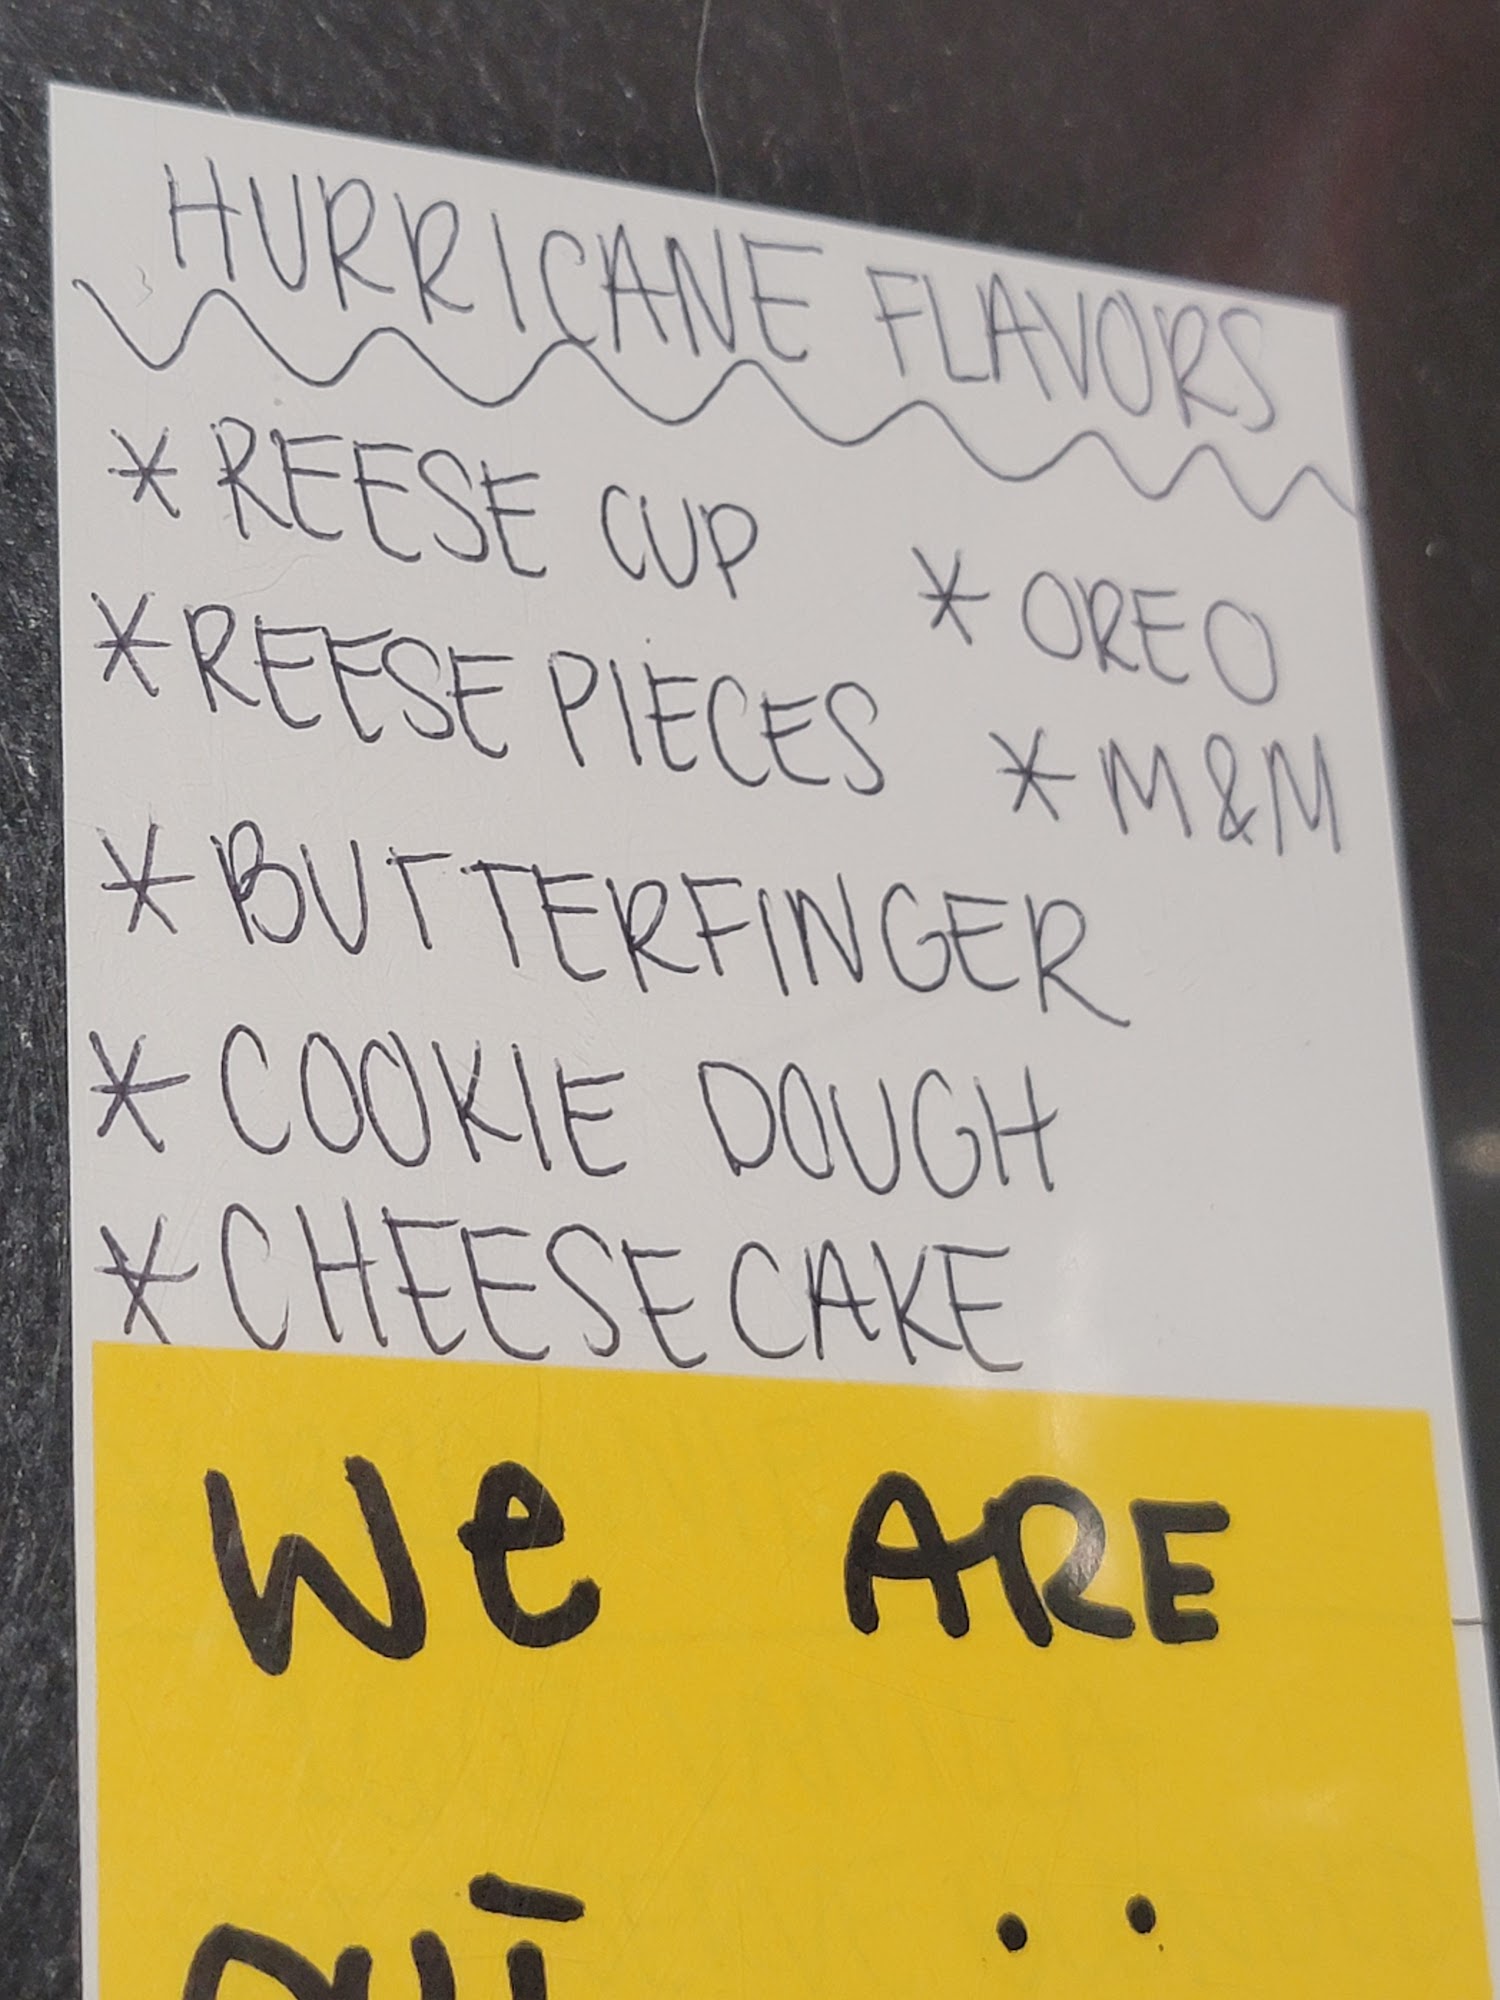 HURRICANE FLAVORS
* REESE CUP
* REESE PIECES
* OREO
* M&M
* BUTTERFINGER
* COOKIE DOUGH
* CHEESECAKE
We ARE